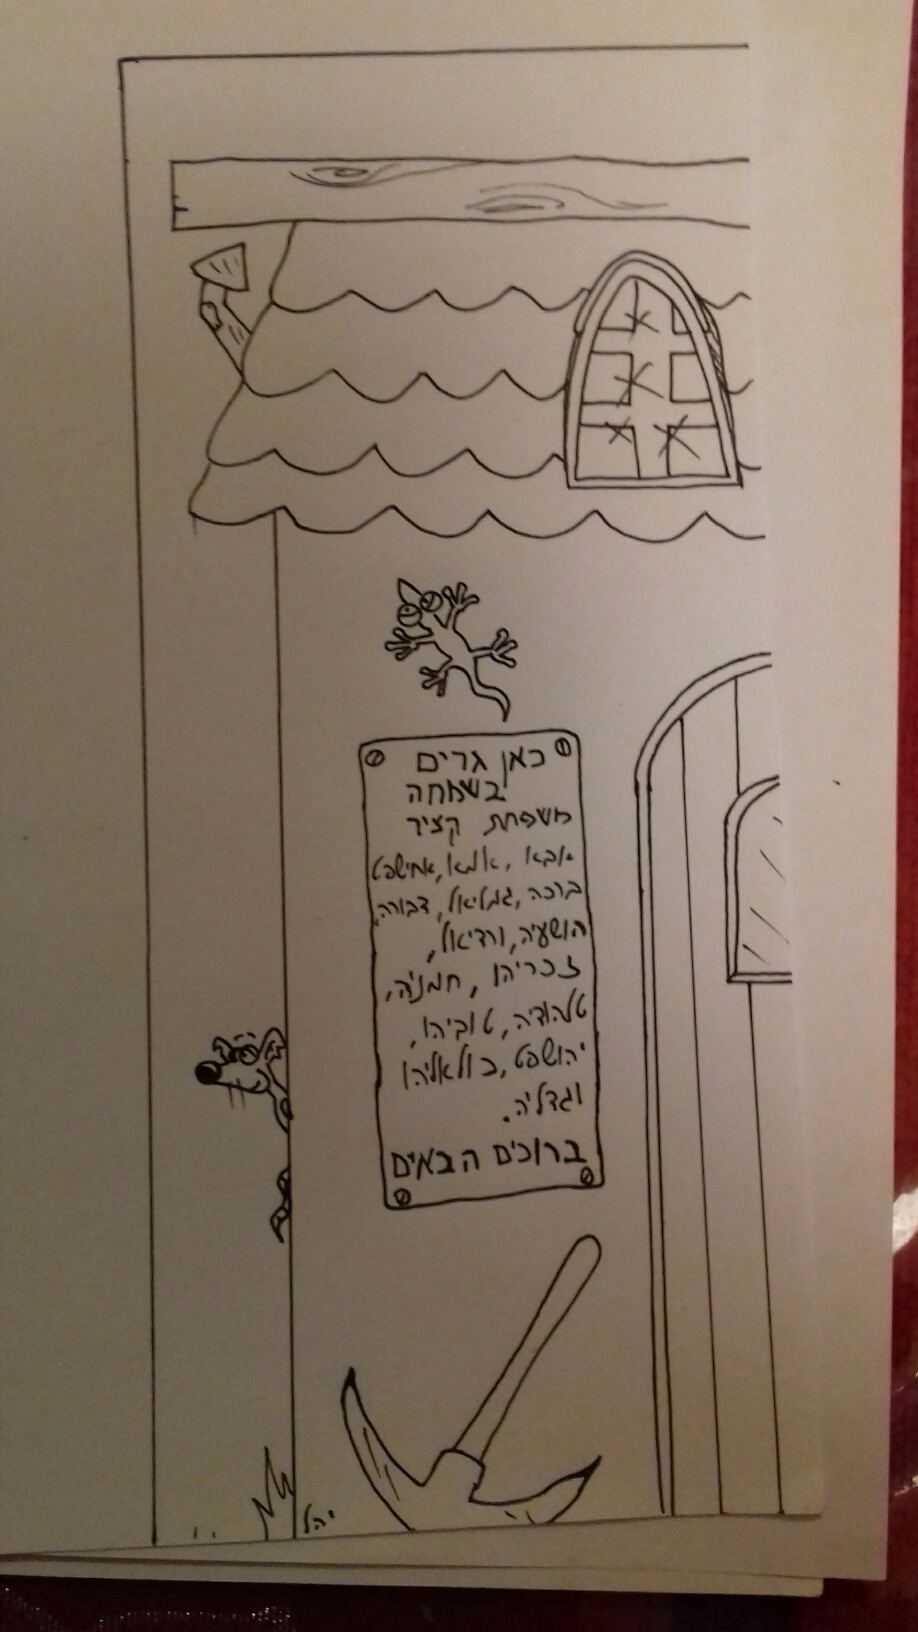 כאן גרים
בשמחה
משפחת קציר
אבא, אמא, אמישפט
ברכה, גמליאל, דבורה,
הושעיה, ורדיאל,
זכריהו, חמניה,
טלהודיה, טוביהו,
יהושפט, כולאליהו
וגדליה.
ברוכים הבאים
יהל